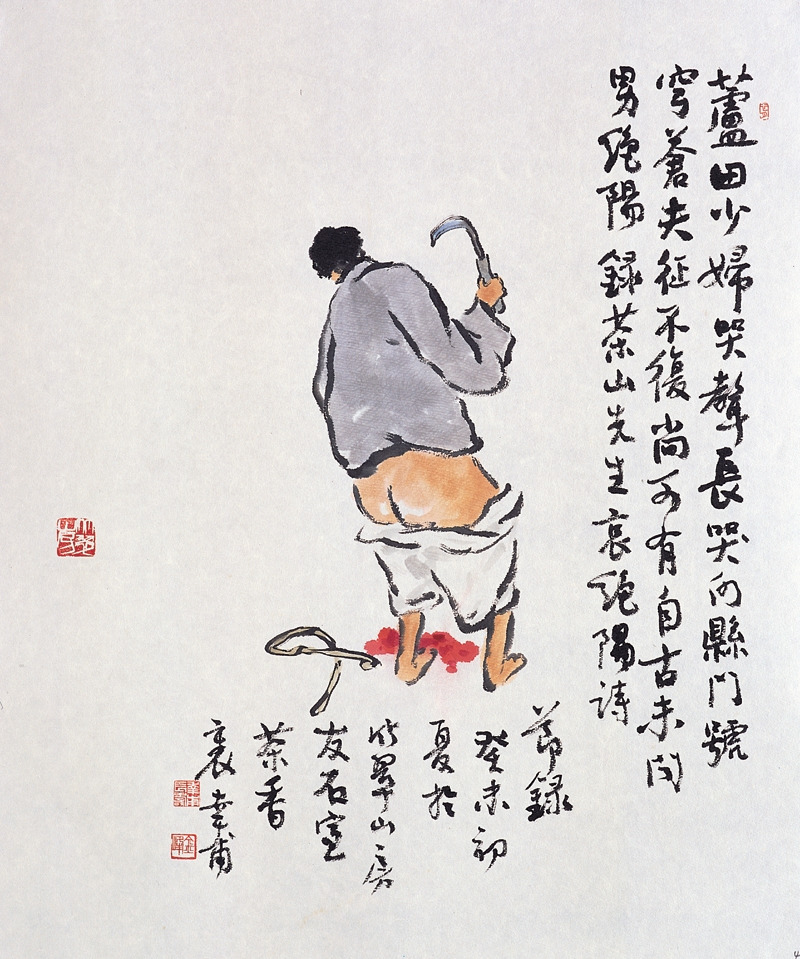 蘆田少婦哭聲長哭向縣門號
穹蒼夫征不復尚可有自古未聞
男絶陽 録茶山先生哀絶陽詩
節録
癸未初
夏於
翠山房
友石室
茶香
裏 甫